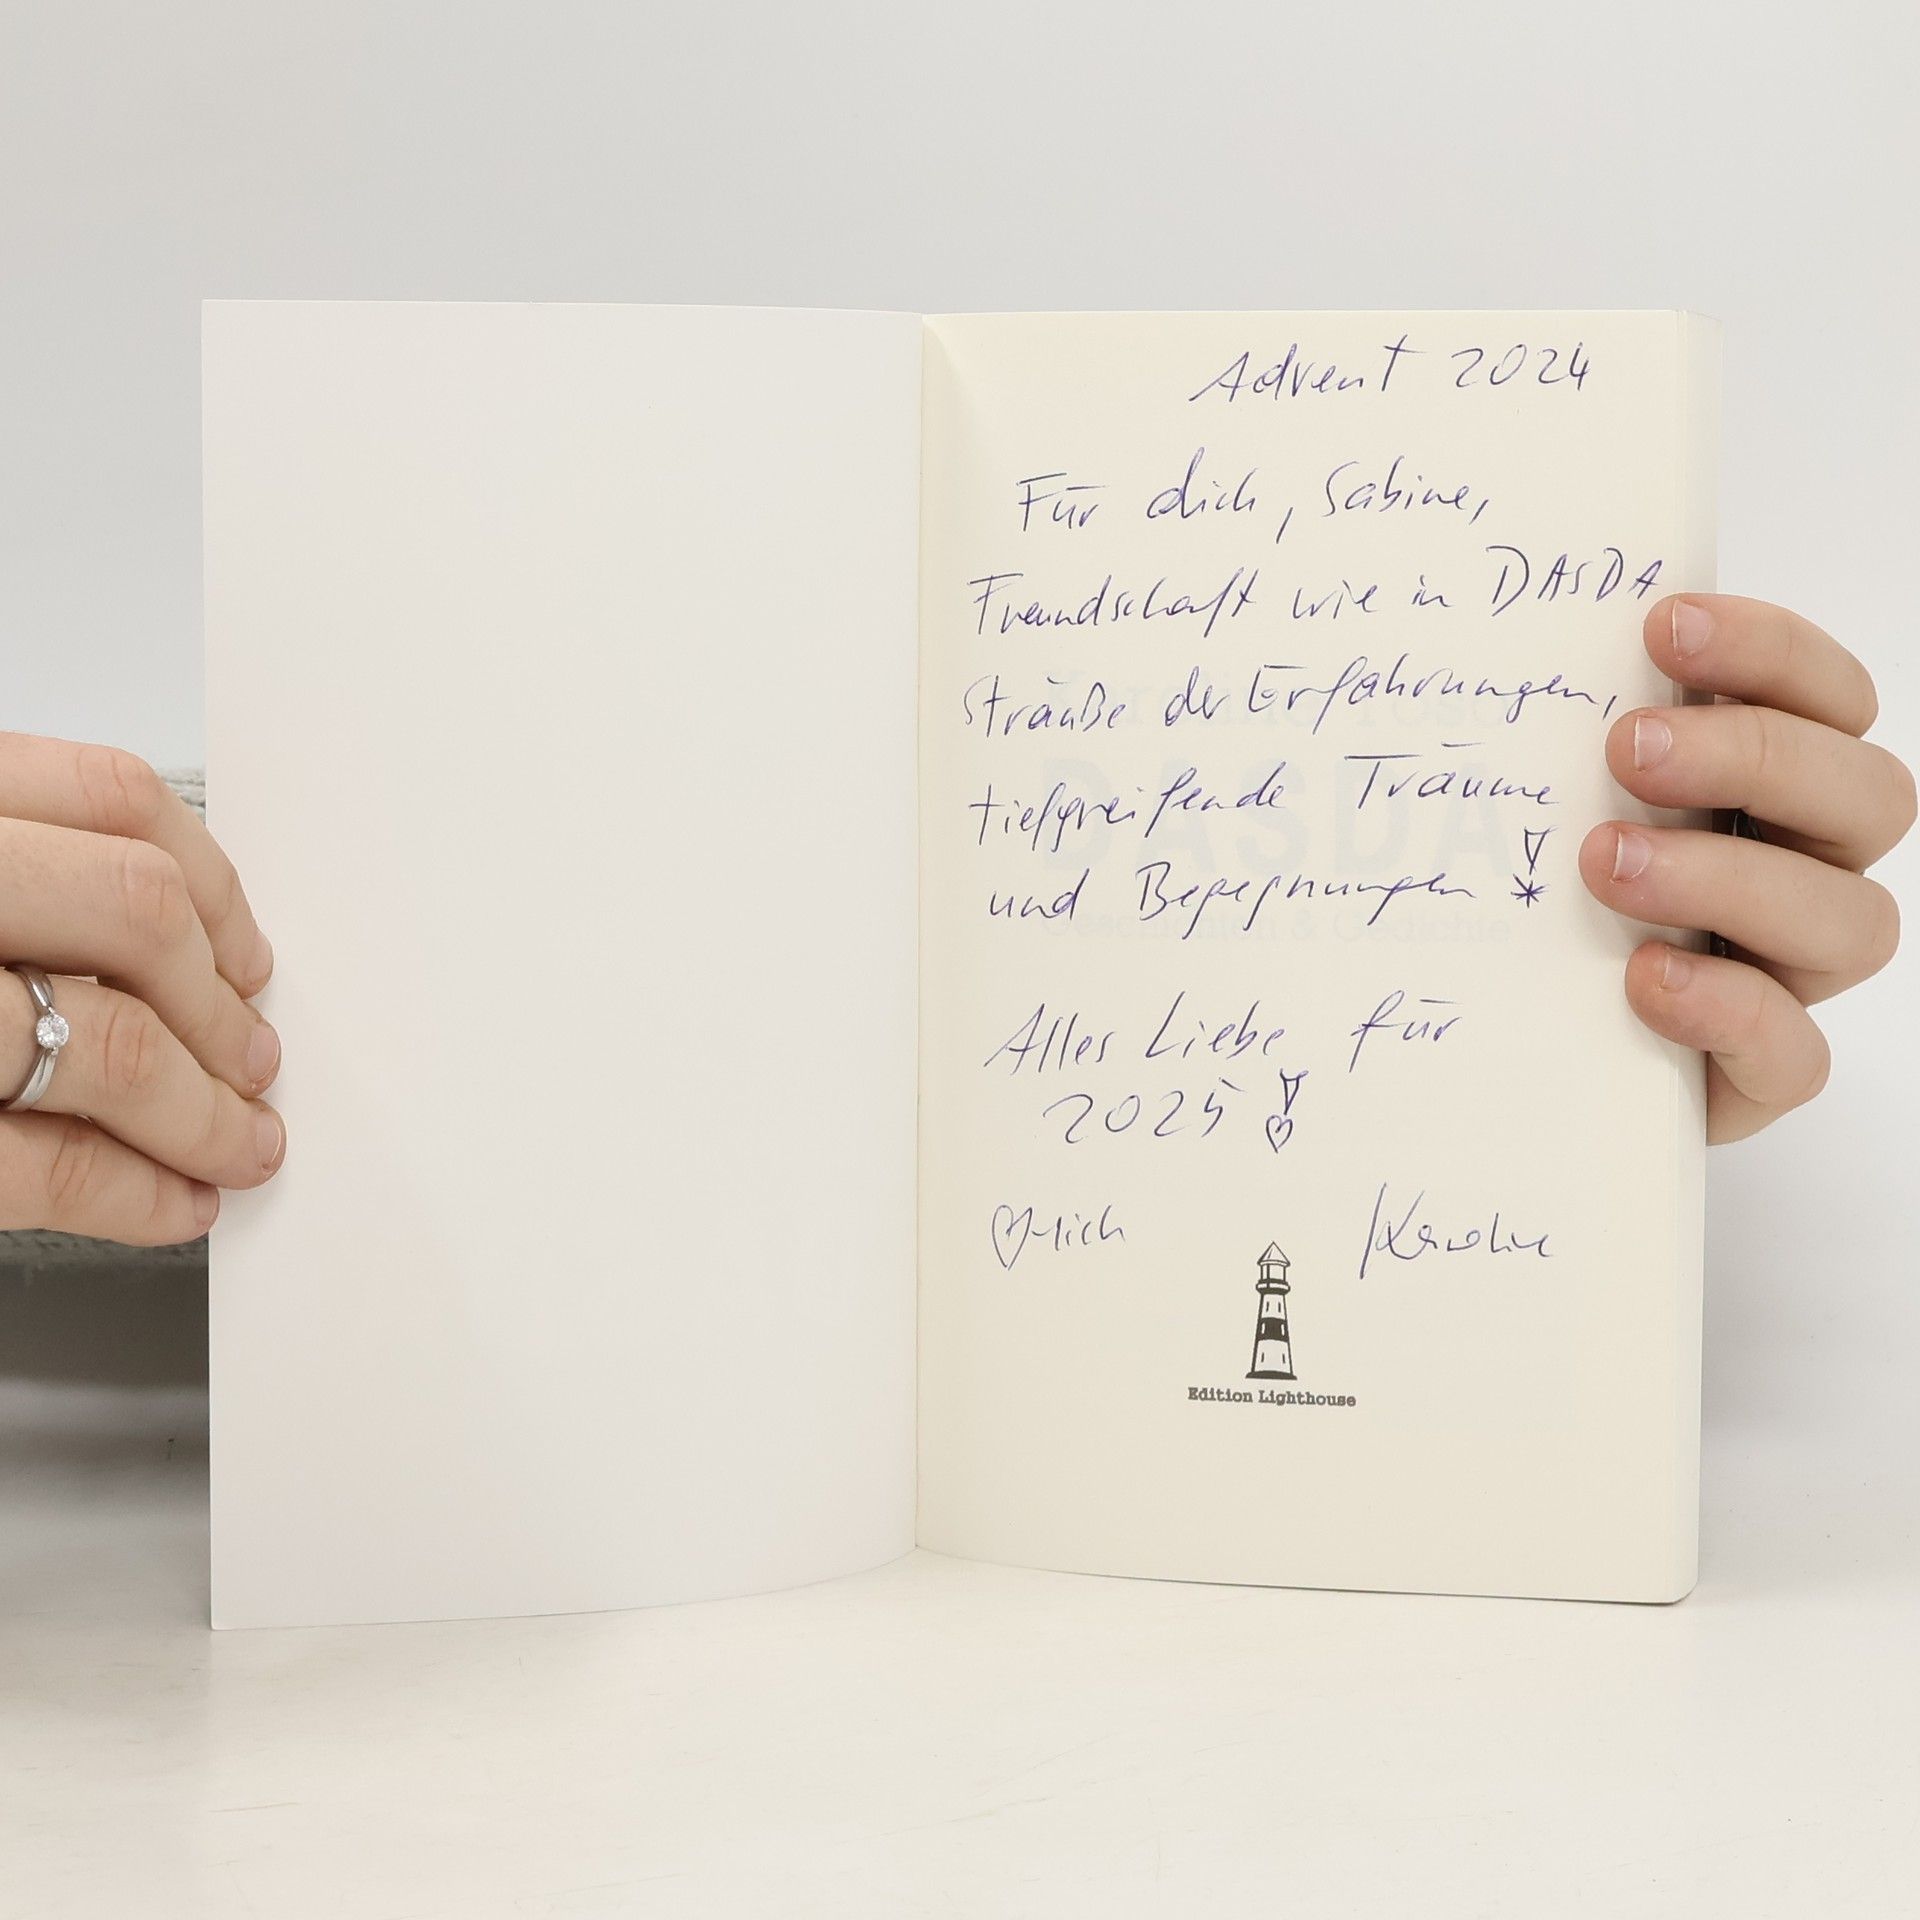 Advent 2024
Für dich, Sabine,
Freundschaft wie in DASDA
Sträuße der Erfahrungen,
tiefgreifende Träume
und Begegnungen !
Alles Liebe für
2025 !
♡-lich Karoline
Edition Lighthouse
DASDA
Geschichten & Gedichte